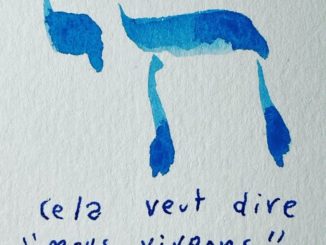 חי
cela veut dire
"nous vivons"